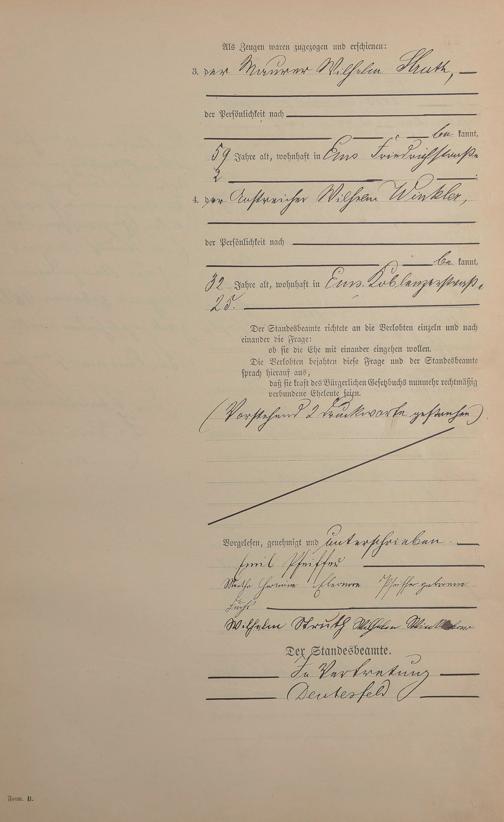 Als Zeugen waren zugezogen und erschienen:
3. der Maurer Wilhelm Struth,
der Persönlichkeit nach
be kannt,
59 Jahre alt, wohnhaft in Ems Friedrichstraße
2
4. der Anstreicher Wilhelm Winkler,
der Persönlichkeit nach
be kannt,
32 Jahre alt, wohnhaft in Ems. Koblenzerstraße
25.
Der Standesbeamte richtete an die Verlobten einzeln und nach
einander die Frage:
ob sie die Ehe mit einander eingehen wollen.
Die Verlobten bejahten diese Frage und der Standesbeamte
sprach hierauf aus,
daß sie kraft des Bürgerlichen Gesetzbuchs nunmehr rechtmäßig
verbundene Eheleute seien.
(Vorstehend 2 Druckworte gestrichen)
Vorgelesen, genehmigt und unterschrieben
Emil Pfeiffer
Eleonore Pfeiffer geborene
Wilhelm Struth Wilhelm Winkler
Der Standesbeamte.
In Vertretung
Deutesfeld
Form. B.